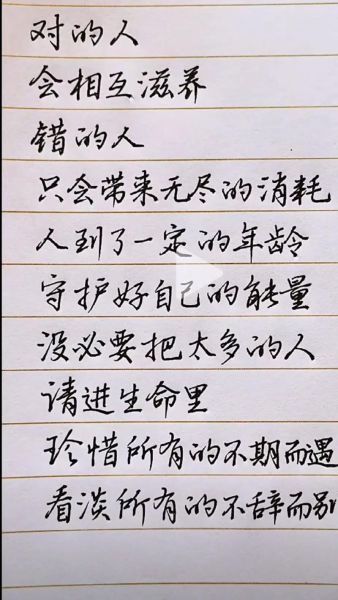 对的人
会相互滋养
错的人
只会带来无尽的消耗
人到了一定的年龄
守护好自己的能量
没必要把太多的人
请进生命里
珍惜所有的不期而遇
看淡所有的不辞而别